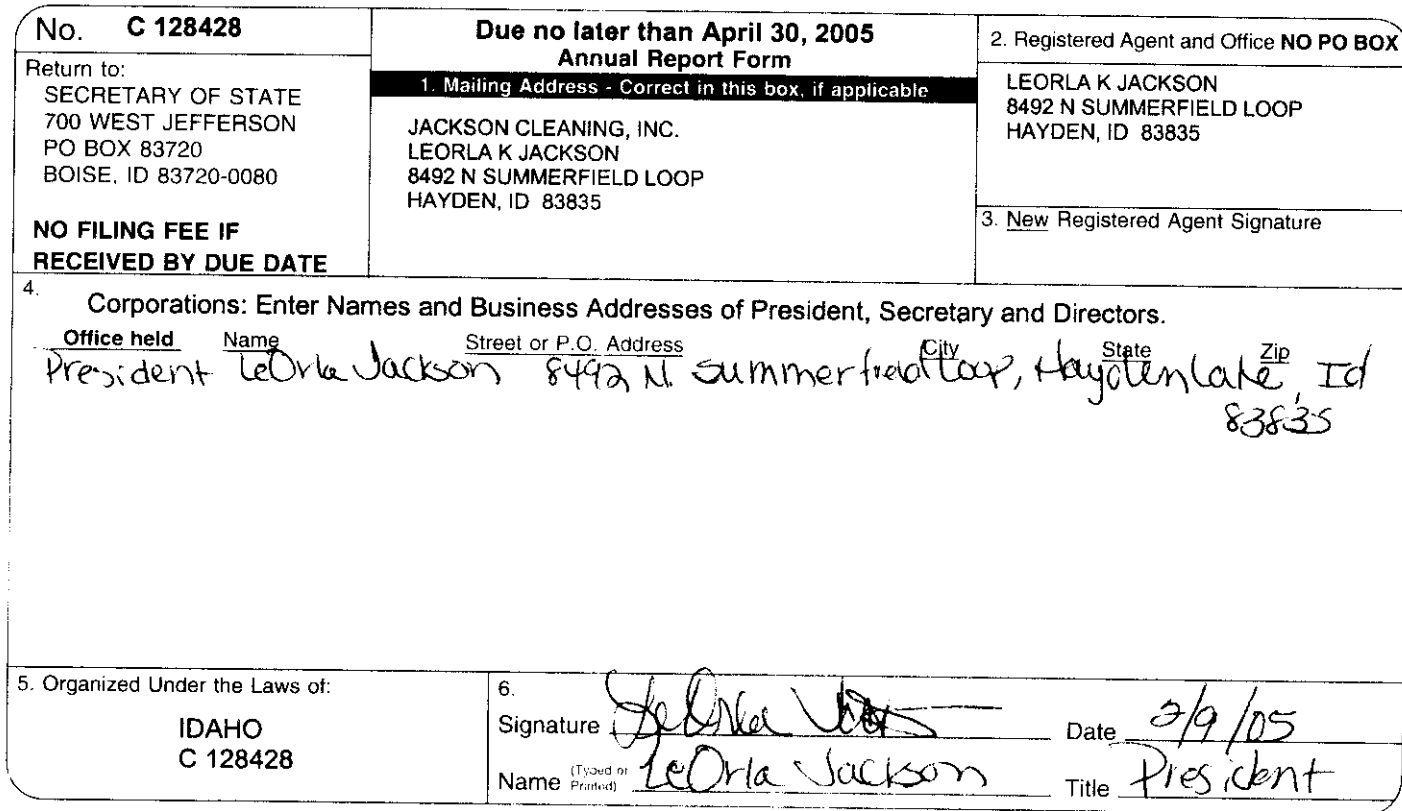 No. C 128428
Return to:
SECRETARY OF STATE
700 WEST JEFFERSON
PO BOX 83720
BOISE, ID 83720-0080
NO FILING FEE IF
RECEIVED BY DUE DATE
Due no later than April 30, 2005
Annual Report Form
1. Mailing Address - Correct in this box, if applicable
JACKSON CLEANING, INC.
LEORLA K JACKSON
8492 N SUMMERFIELD LOOP
HAYDEN, ID 83835
2. Registered Agent and Office NO PO BOX
LEORLA K JACKSON
8492 N SUMMERFIELD LOOP
HAYDEN, ID 83835
3. New Registered Agent Signature
4.
Corporations: Enter Names and Business Addresses of President, Secretary and Directors.
Office held Name Street or P.O. Address City State Zip
President LeOrla Jackson 8492 N. Summerfield Loop, Hayden Lake, Id
83835
5. Organized Under the Laws of:
IDAHO
C 128428
6.
Signature LeOrla Date 2/9/05
Name (Typed or Printed) LeOrla Jackson Title President